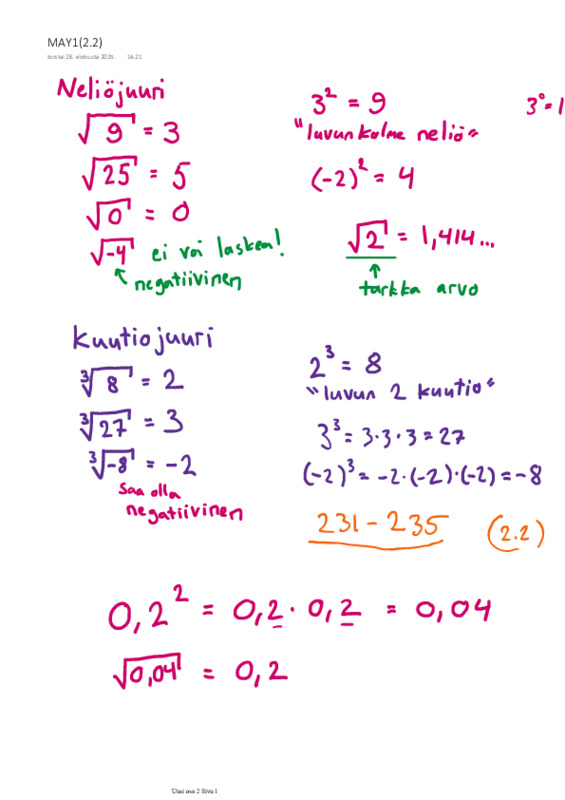 MAY1(2.2)
torstai 28. elokuuta 2025 14.21
Neliöjuuri
√9 = 3
√25 = 5
√0 = 0
√-4 ei voi laskea!
↖ negatiivinen
3² = 9
"luvun kolme neliö"
(-2)² = 4
3⁰ = 1
√2 = 1,414...
↑
tarkka arvo
Kuutiojuuri
³√8 = 2
³√27 = 3
³√-8 = -2
Saa olla
negatiivinen
2³ = 8
"luvun 2 kuutio"
3³ = 3·3·3 = 27
(-2)³ = -2·(-2)·(-2) = -8
231 - 235 (2.2)
0,2² = 0,2 · 0,2 = 0,04
√0,04 = 0,2
Uusi osa 2 Sivu 1